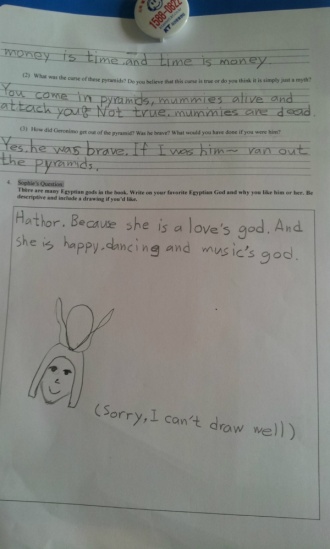 1588-0822
money is time and time is money.
(2) What was the curse of these pyramids? Do you believe that this curse is true or do you think it is simply just a myth?
You come in pyramids, mummies alive and
attack you. Not true, mummies are dead.
(3) How did Geronimo get out of the pyramid? Was he brave? What would you have done if you were him?
Yes, he was brave. If I was him~ ran out
the pyramids.
4. Sophie's Question:
There are many Egyptian gods in the book. Write on your favorite Egyptian God and why you like him or her. Be
descriptive and include a drawing if you'd like.
Hathor. Because she is a love's god. And
she is happy, dancing and music's god.
(Sorry, I can't draw well)